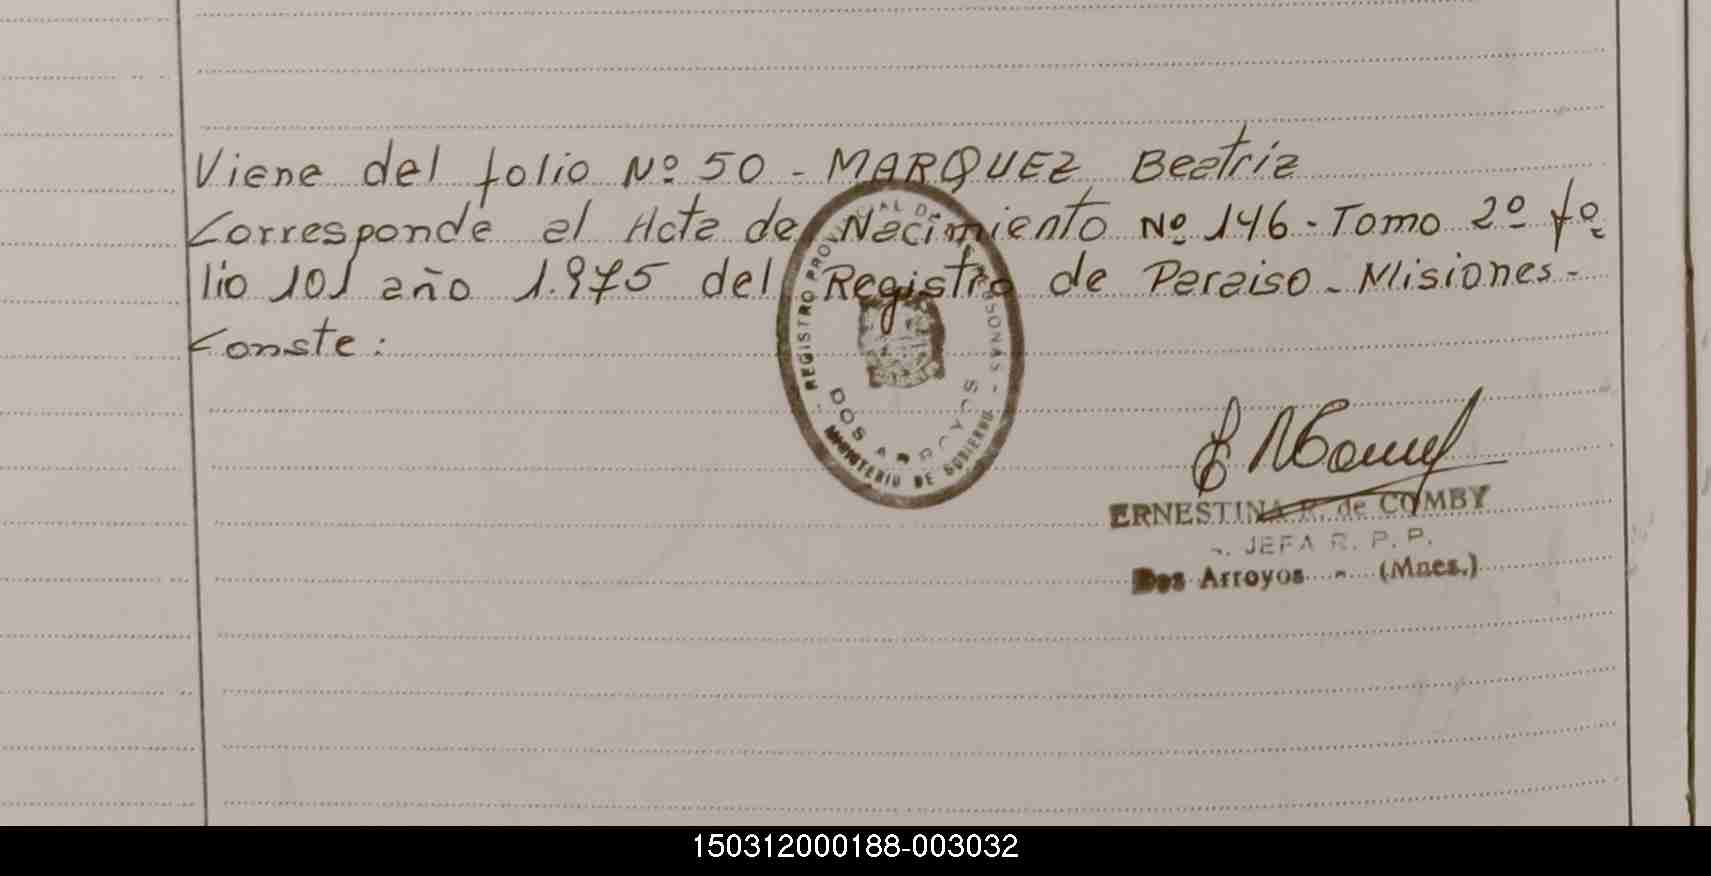 Viene del folio Nº 50 - MARQUEZ Beatriz
Corresponde al Acta de Nacimiento Nº 146 - Tomo 2º fº
lio 101 año 1.975 del Registro de Paraiso - Misiones -
Conste:
REGISTRO PROVINCIAL DE PERSONAS -
DOS ARROYOS
MINISTERIO DE GOBIERNO
ERNESTINA R. de COMBY
JEFA R. P. P.
Dos Arroyos - (Mnes.)
150312000188-003032